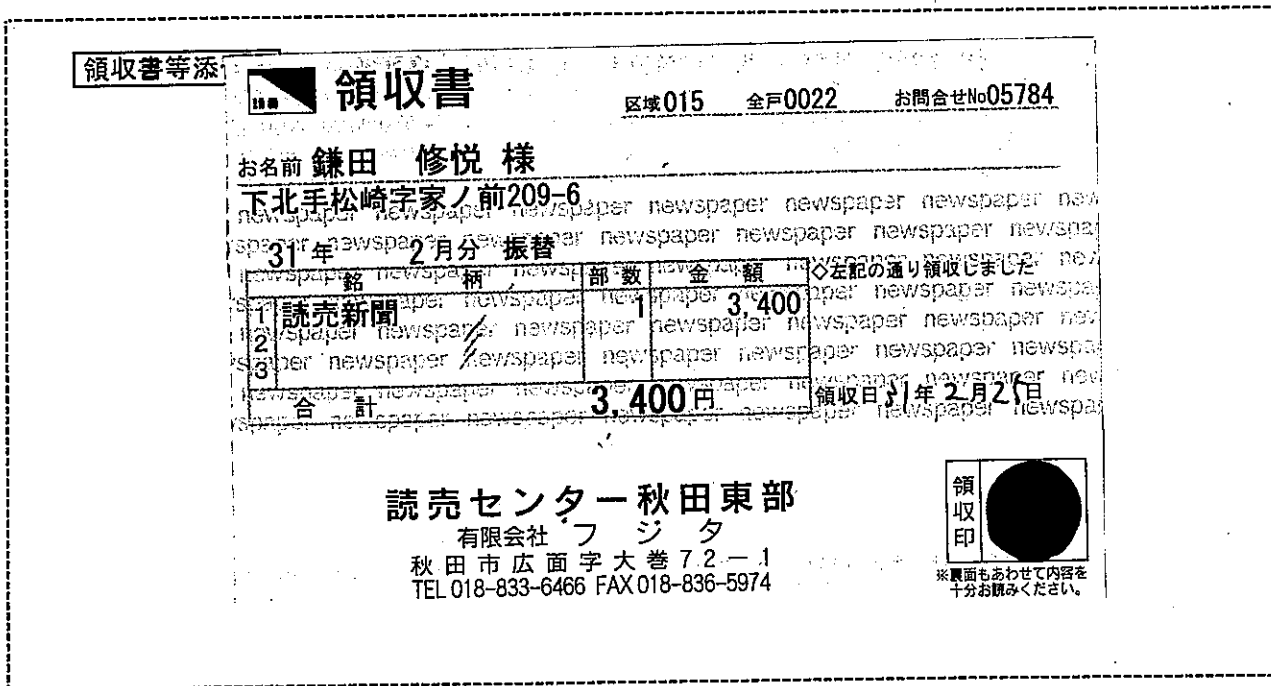 領収書等添
領収書
区域015 全戸0022 お問合せNo05784
お名前 鎌田 修悦 様
下北手松崎字家ノ前209-6
31年 2月分 振替
銘柄 部数 金額 ◇左記の通り領収しました
1 読売新聞 1 3,400
2
3
合計 3,400円 領収日31年2月25日
読売センター秋田東部
有限会社 フジタ
秋田市広面字大巻72-1
TEL 018-833-6466 FAX 018-836-5974
領収印
※裏面もあわせて内容を
十分お読みください。